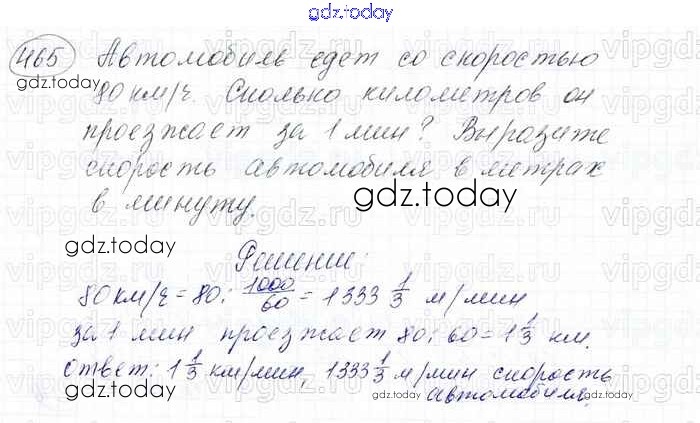 gdz.today
465 Автомобиль едет со скоростью
gdz.today
80 км/ч. Сколько километров он
проезжает за 1 мин? Выразите
скорость автомобиля в метрах
gdz.today
в минуту.
gdz.today
Решение:
80 км/ч = 80 · 1000/60 = 1333 1/3 м/мин
за 1 мин проезжает 80 : 60 = 1 1/3 км.
Ответ: 1 1/3 км/мин, 1333 1/3 м/мин скорость
автомобиля.
gdz.today